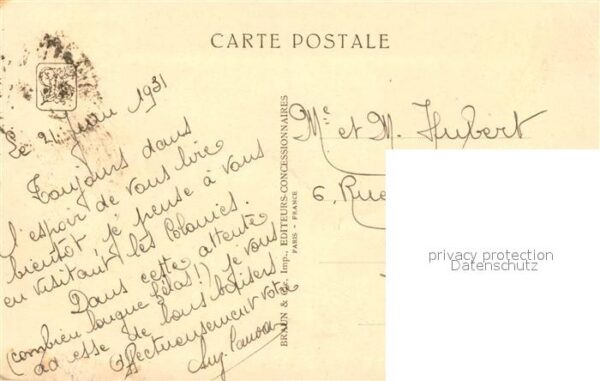 CARTE POSTALE
Le 21 Juin 1931
Toujours dans
l'espoir de vous lire
bientôt je pense à vous
en visitant les Colonies.
Dans cette attente
(combien longue hélas!) je vous
ad esse de bons baisers
Affectueusement votre
BRAUN & Cie Imp., EDITEURS-CONCESSIONNAIRES
PARIS - FRANCE
Me et M. Hubert
6, Rue
privacy protection
Datenschutz